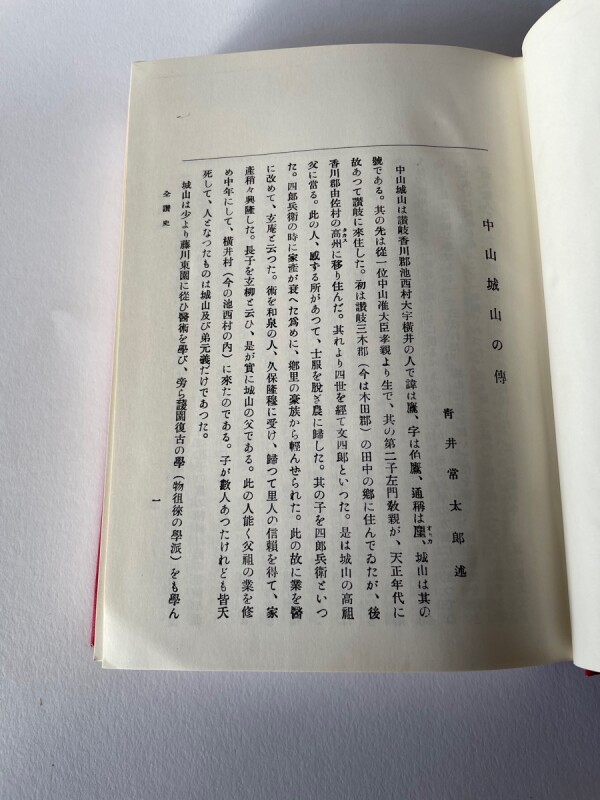 中山城山の傳
青井常太郎述
中山城山は讃岐香川郡池西村大字橫井の人で諱は鷹、字は伯鷹、通稱は塵、城山は其の
號である。其の先は從一位中山准大臣孝親より生で、其の第二子左門敎親が、天正年代に
故あつて讃岐に來住した。初は讃岐三木郡（今は木田郡）の田中の鄕に住んでゐたが、後
香川郡由佐村の高州に移り住んだ。其れより四世を經て文四郎といつた。是は城山の高祖
父に當る。此の人、感ずる所があつて、士服を脫ぎ農に歸した。其の子を四郎兵衛といつ
た。四郎兵衛の時に家產が衰へた爲めに、鄕里の豪族から輕んせられた。此の故に業を醫
に改めて、玄庵と云つた。術を和泉の人、久保隆穆に受け、歸つて里人の信賴を得て、家
產稍々興隆した。長子を玄柳と云ひ、是が實に城山の父である。此の人能く父祖の業を修
め中年にして、橫井村（今の池西村の內）に來たのである。子が數人あつたけれども皆夭
死して、人となつたものは城山及び弟元義だけであつた。
城山は少より藤川東園に從ひ醫術を學び、旁ら蘐園復古の學（物徂徠の學派）をも學ん
全讃史
一